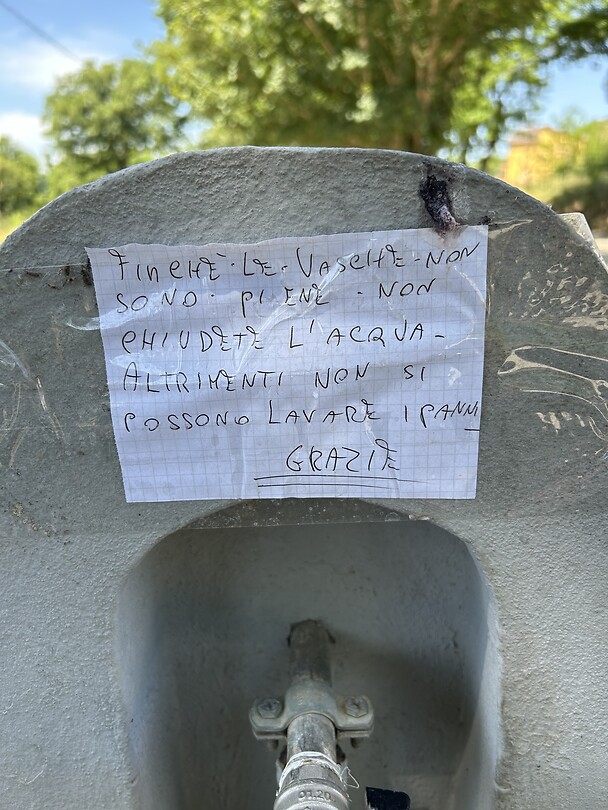 FINCHÈ·LE·VASCHE·NON
SONO· PIENE · NON
CHIUDETE L'ACQUA-
ALTRIMENTI NON SI
POSSONO LAVARE I PANNI
GRAZIE
01.20